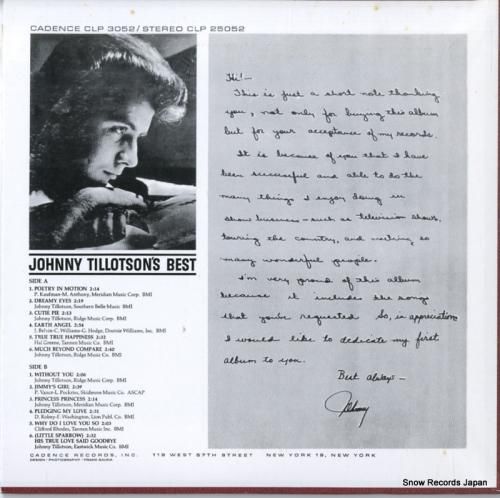 CADENCE CLP 3052/STEREO CLP 25052
Hi! —
This is just a short note thanking
you, not only for buying this album
but for your acceptance of my records.
It is because of you that I have
been successful and able to do the
many things I enjoy doing in
show business — such as television shows,
touring the country, and meeting so
many wonderful people.
I'm very proud of this album
because it includes the songs
that you've requested So, in appreciation
I would like to dedicate my first
album to you.
Best always —
Johnny
JOHNNY TILLOTSON'S BEST
SIDE A
1. POETRY IN MOTION 2:14
P. Kaufman-M. Anthony, Meridian Music Corp. BMI
2. DREAMY EYES 2:19
Johnny Tillotson, Southern Belle Music BMI
3. CUTIE PIE 2:13
Johnny Tillotson, Ridge Music Corp. BMI
4. EARTH ANGEL 2:54
J. Belvin-C. Williams-G. Hodge, Dootsie Williams, Inc. BMI
5. TRUE TRUE HAPPINESS 2:32
Hal Greene, Tannen Music Co. BMI
6. MUCH BEYOND COMPARE 2:40
Johnny Tillotson, Ridge Music Co. BMI
SIDE B
1. WITHOUT YOU 2:06
Johnny Tillotson, Ridge Music Corp. BMI
2. JIMMY'S GIRL 2:39
P. Vance-L. Pockriss, Skidmore Music Co. ASCAP
3. PRINCESS PRINCESS 2:14
Johnny Tillotson, Meridian Music Corp. BMI
4. PLEDGING MY LOVE 2:31
D. Robey-F. Washington, Lion Publ. Co. BMI
5. WHY DO I LOVE YOU SO 2:03
Clifford Rhodes, Tannen Music Inc. BMI
6. (LITTLE SPARROW) 2:32
HIS TRUE LOVE SAID GOODBYE
Johnny Tillotson, Eastwick Music Co. BMI
CADENCE RECORDS, INC. 119 WEST 57TH STREET NEW YORK 19, NEW YORK
DESIGN • PHOTOGRAPHY • FRANK GAUNA
Snow Records Japan.com